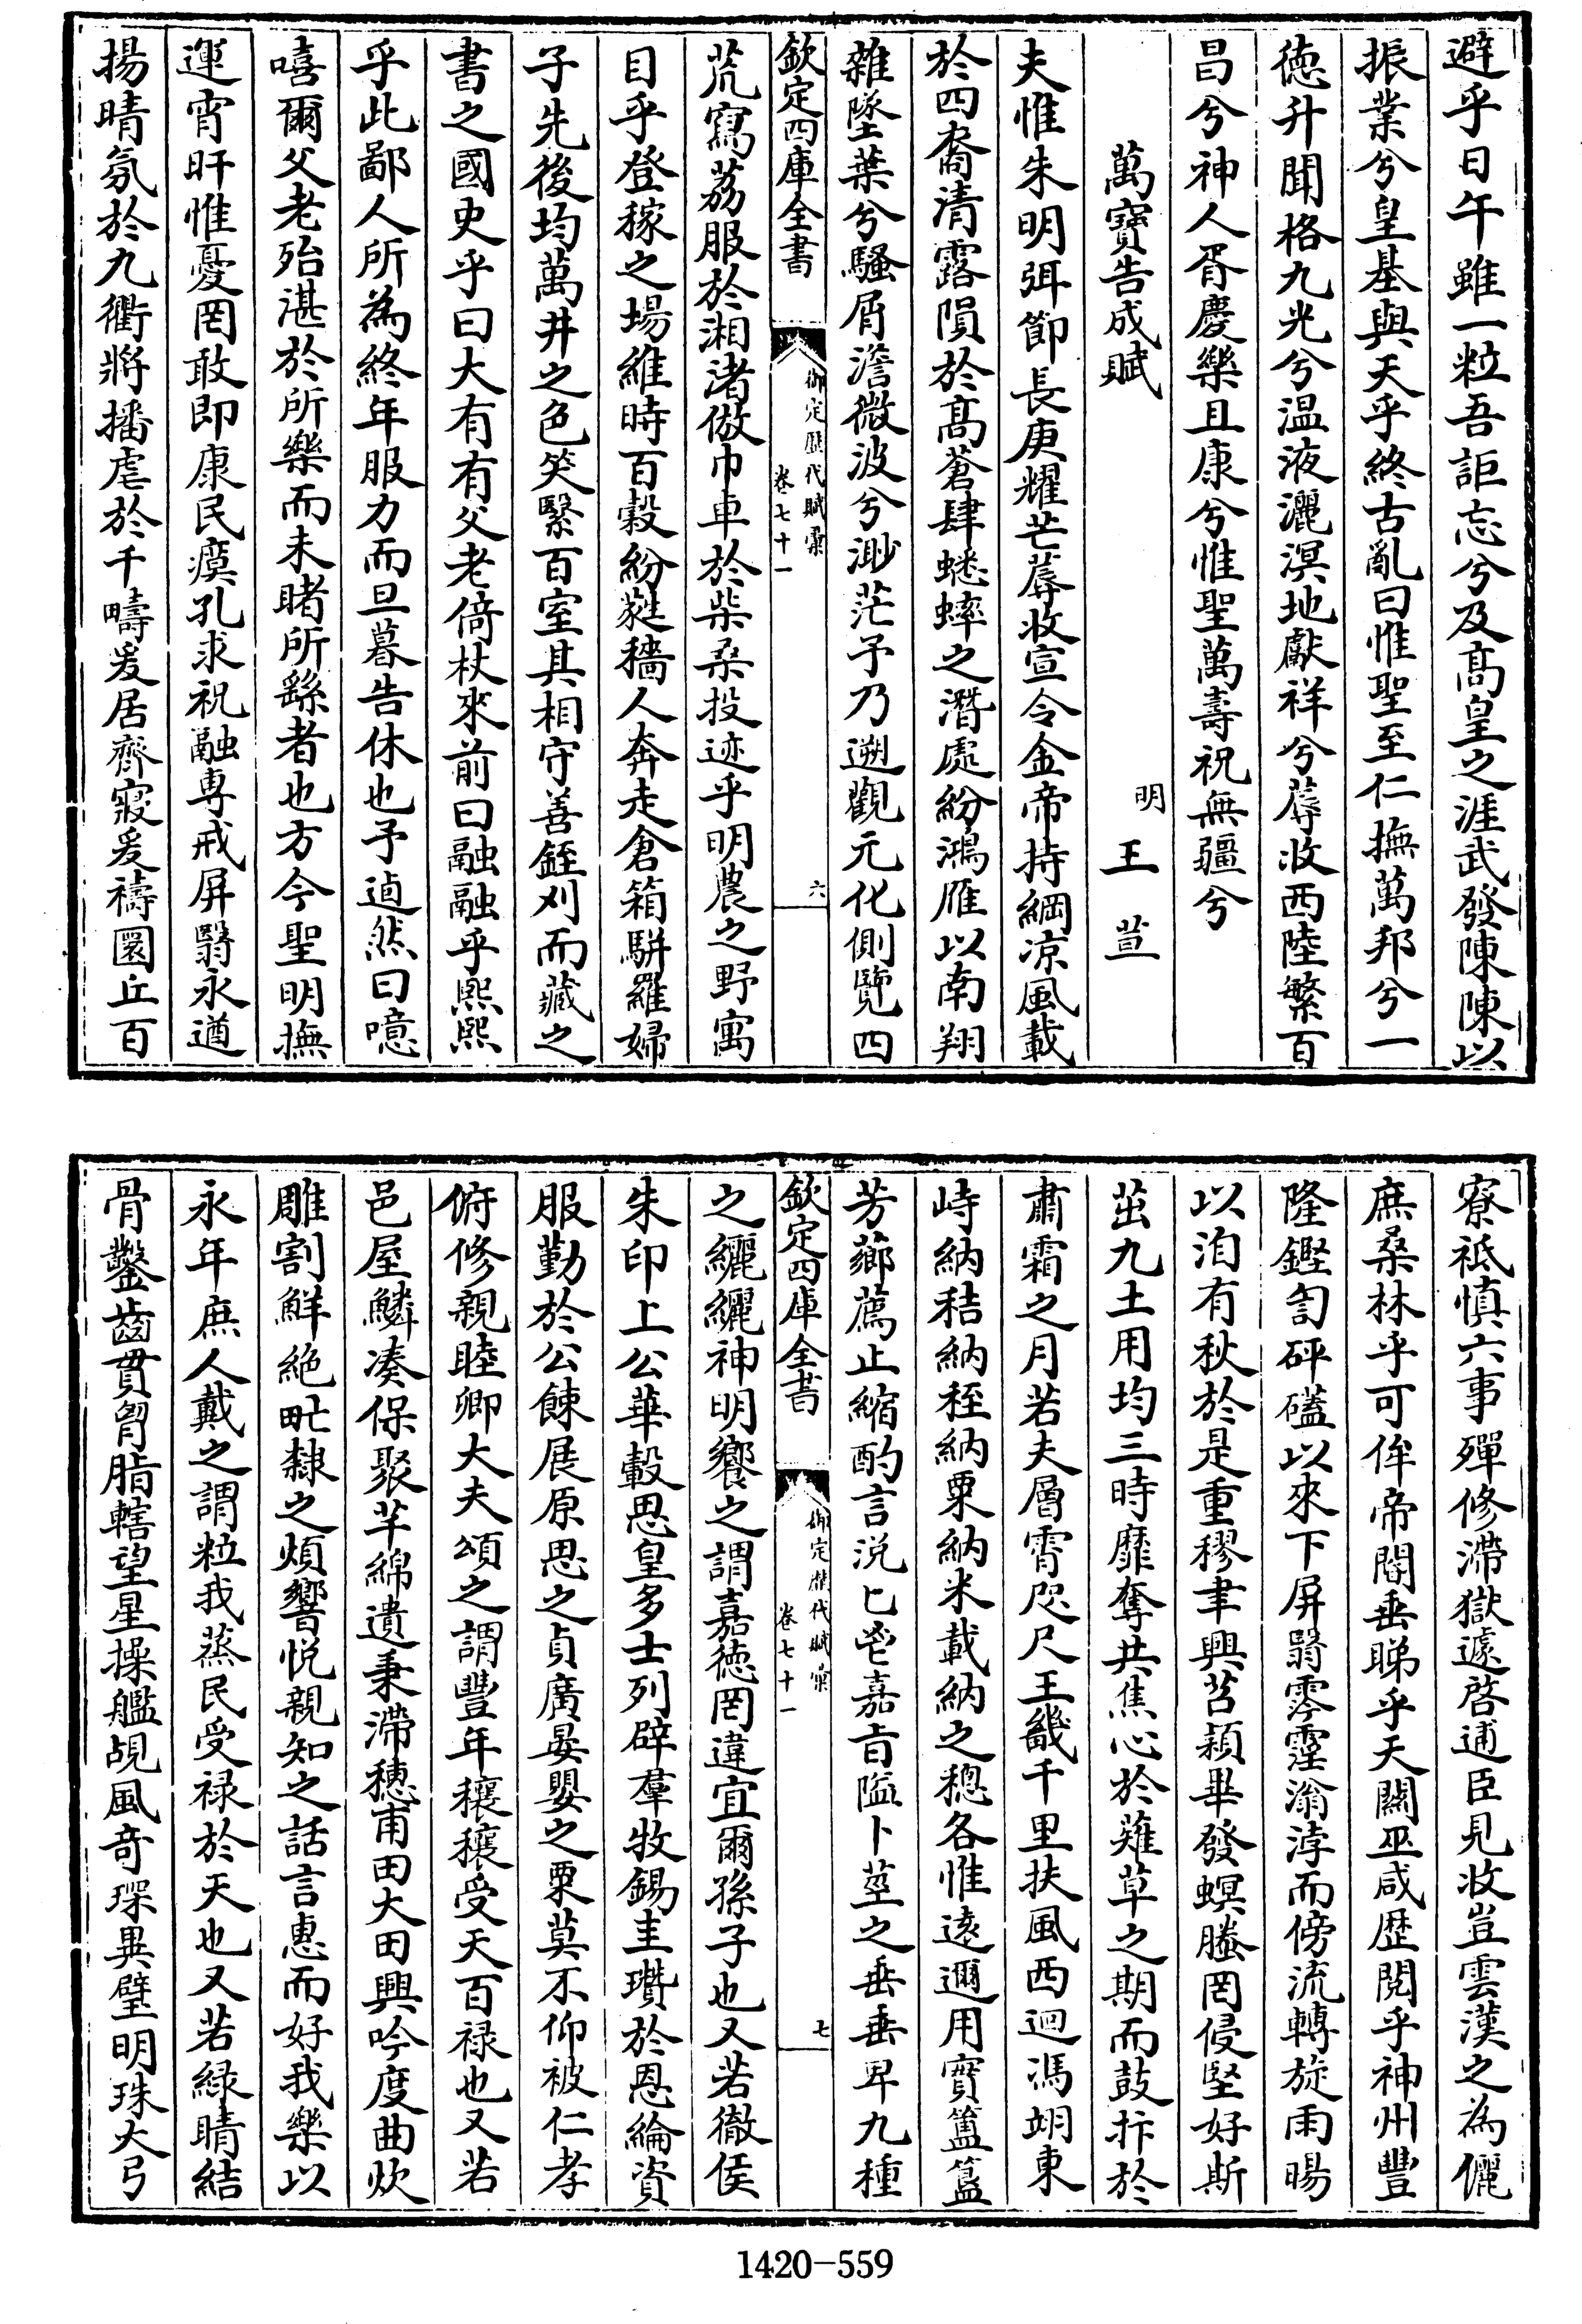 避乎日午雖一粒吾詎忘兮及髙皇之涯武發陳陳以
振業兮皇基與天乎終古亂曰惟聖至仁撫萬邦兮一
徳升聞格九光兮温液灑溟地獻祥兮蓐收西陸繁百
昌兮神人胥慶樂且康兮惟聖萬壽祝無疆兮
萬寶告成賦
明王荁
夫惟朱明弭節長庚耀芒蓐收宣令金帝持綱凉風載
於四裔清露隕於髙蒼肆蟋蟀之潛處紛鴻雁以南翔
雜墜葉兮騷屑澹微波兮渺茫予乃遡觀元化側覽四
欽定四庫全書
御定歴代賦彙
卷七十一
六
荒寫荔服於湘渚倣巾車於柴桑投迹乎明農之野寓
目乎登稼之場維時百穀紛蕤穡人奔走倉箱駢羅婦
子先後均萬井之色笑繄百室其相守善銍刈而藏之
書之國史乎曰大有有父老倚杖來前曰融融乎熙熙
乎此鄙人所為終年服力而旦暮告休也予逌然曰噫
嘻爾父老殆湛於所樂而未睹所繇者也方今聖明撫
運宵旰惟憂罔敢即康民瘼孔求祝融專戒屏翳永遒
揚晴氛於九衢將播虐於千疇爰居齋寢爰禱圜丘百
寮祗慎六事殫修滯獄遽啓逋臣見收豈雲漢之為儷
庶桑林乎可侔帝閽垂睇乎天闗巫咸歴閲乎神州豐
隆鏗訇砰礚以來下屏翳霶霪滃浡而傍流轉旋雨暘
以洎有秋於是重穋聿興苕穎畢發螟螣罔侵堅好斯
茁九土用均三時靡奪共焦心於薙草之期而鼓抃於
肅霜之月若夫層霄咫尺王畿千里扶風西迴馮翊東
峙納秸納秷納粟納米載納之緫各惟逺邇用實簠簋
芳薌薦止縮酌言涚匕鬯嘉旨隘卜莖之垂垂畀九種
欽定四庫全書
御定歴代賦彙
卷七十一
七
之纚纚神明饗之謂嘉徳罔違宜爾孫子也又若徹侯
朱印上公華轂思皇多士列辟羣牧錫圭瓚於恩綸資
服勤於公餗展原思之貞廣晏嬰之粟莫不仰被仁孝
俯修親睦卿大夫頌之謂豐年穰穰受天百禄也又若
邑屋鱗凑保聚芊綿遺秉滯穗甫田大田興吟度曲炊
雕割鮮絶甿隸之煩響悦親知之話言惠而好我樂以
永年庶人戴之謂粒我蒸民受禄於天也又若緑睛結
骨鑿齒貫胷脂轄望星操艦覘風奇琛異璧明珠大弓
1420-559